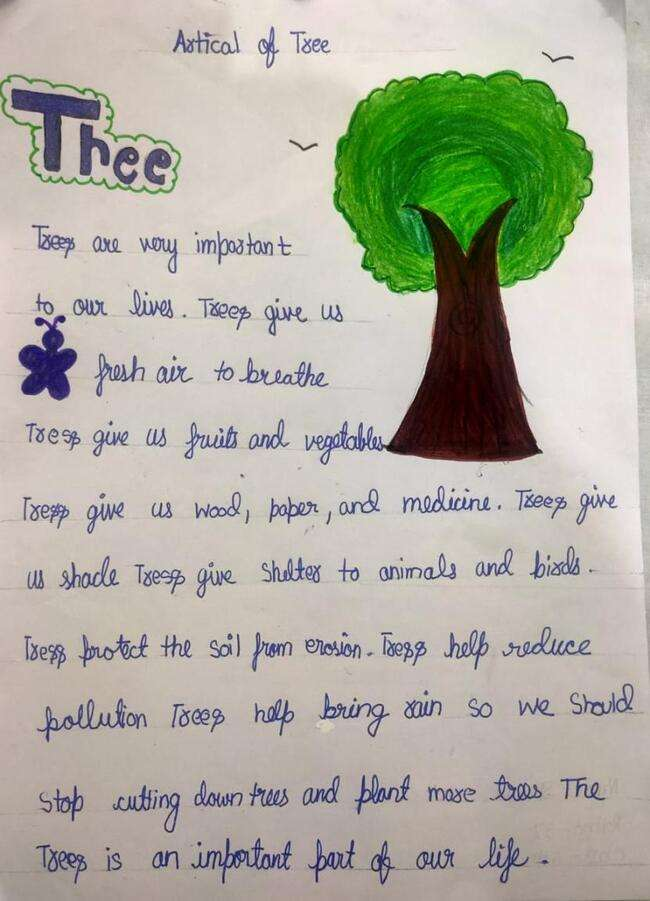 Artical of Tree
Thee
Trees are very important
to our lives. Trees give us
fresh air to breathe
Trees give us fruits and vegetables
Trees give us wood, paper, and medicine. Trees give
us shade Trees give Shelter to animals and birds.
Trees protect the soil from erosion. Trees help reduce
pollution Trees help bring rain so we should
Stop cutting down trees and plant more trees The
Trees is an important part of our life.